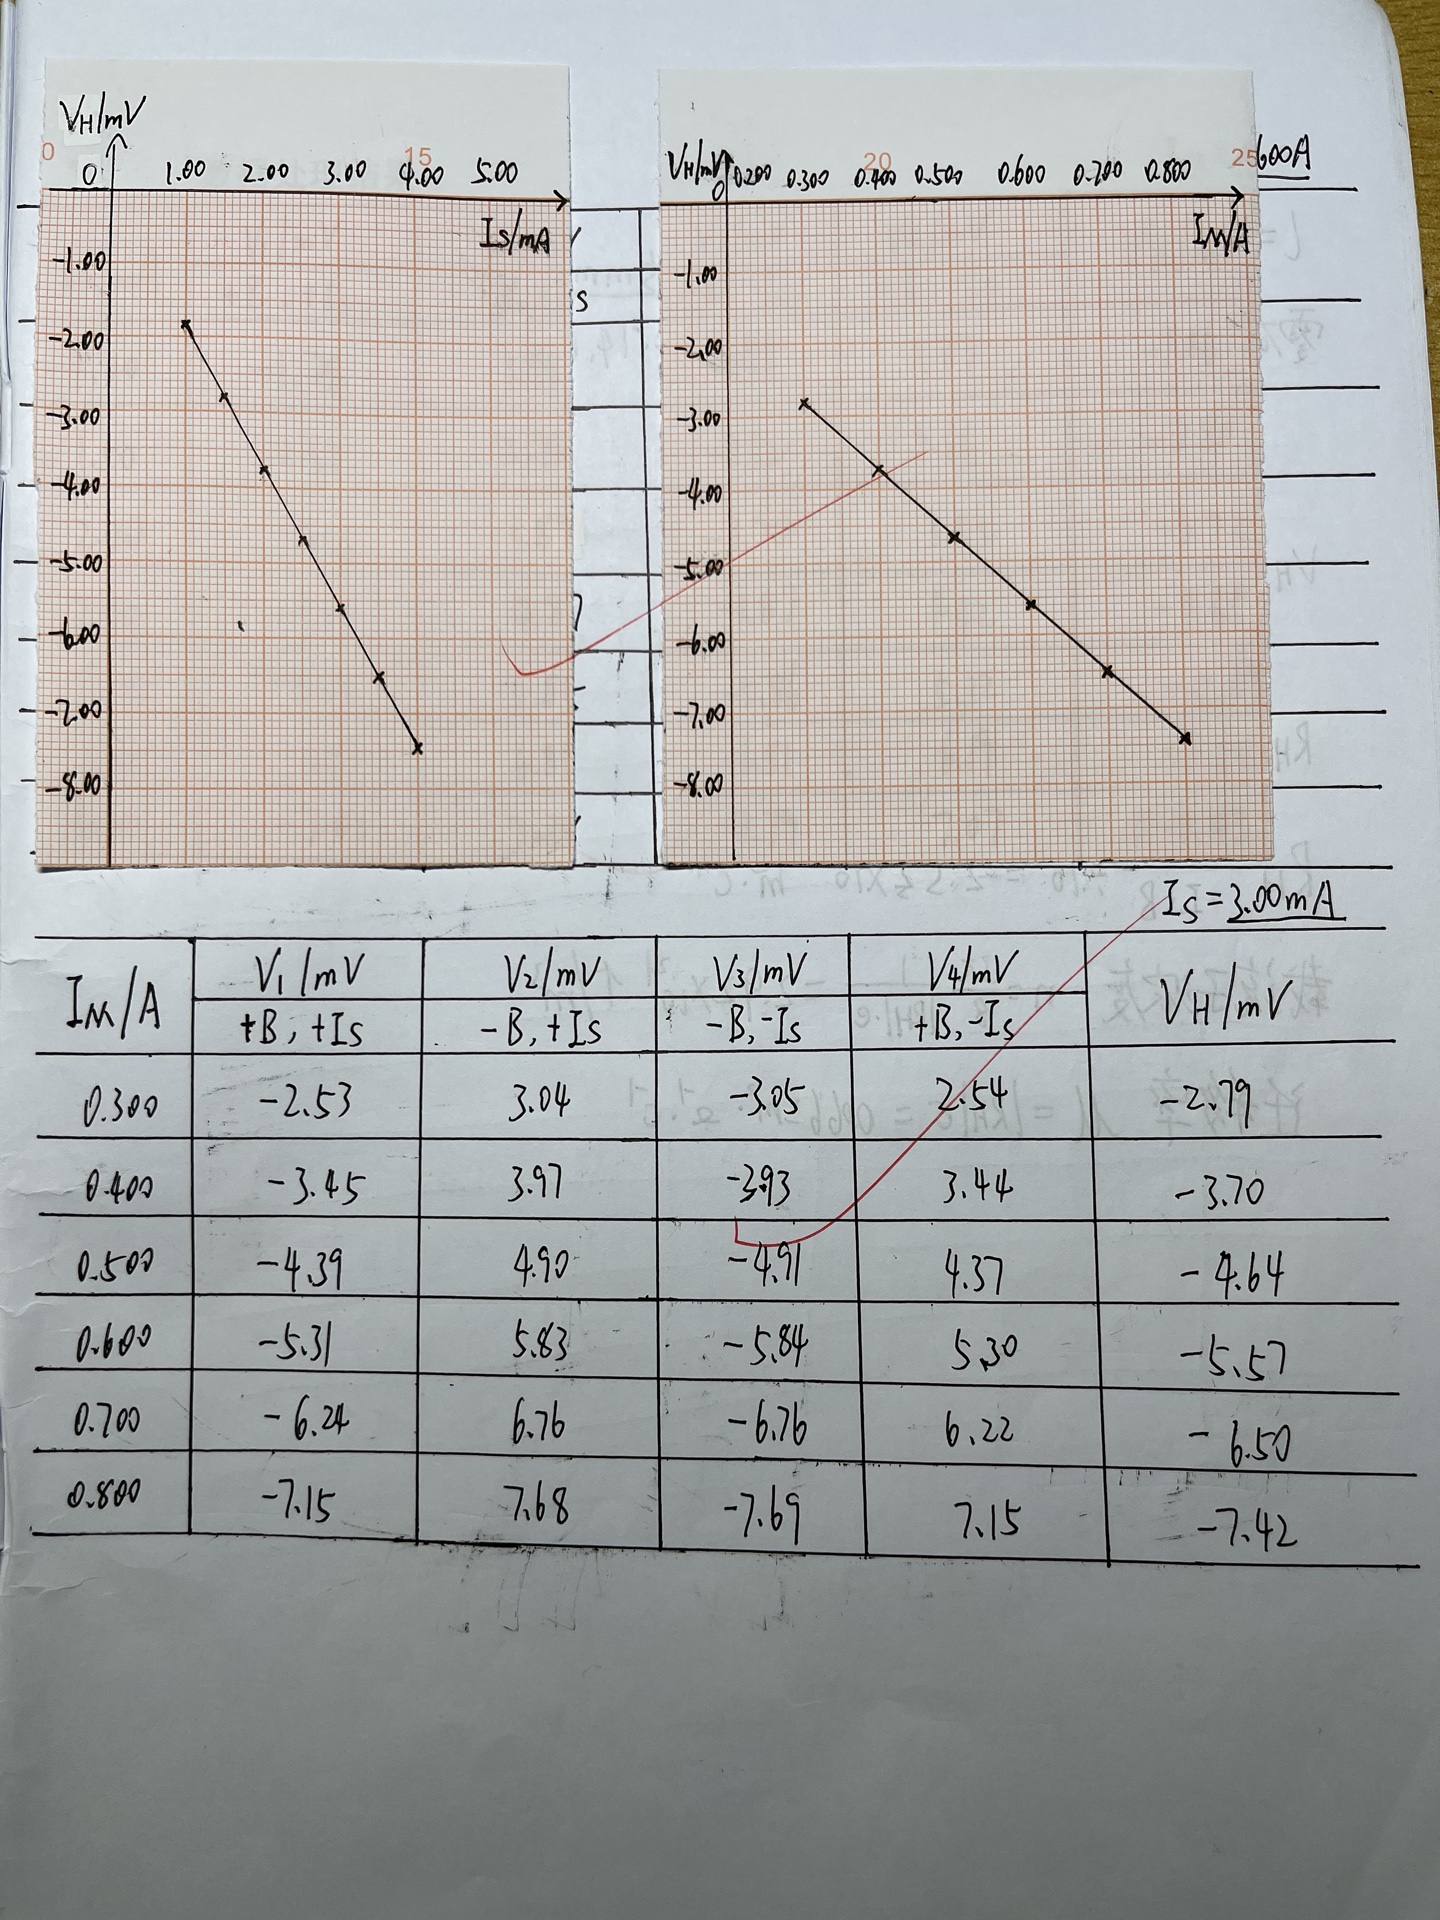 VH/mV
0
15
0 1.00 2.00 3.00 4.00 5.00
Is/mA
-1.00
-2.00
-3.00
-4.00
-5.00
-6.00
-7.00
-8.00
VH/mV
20
25
0 0.200 0.300 0.400 0.500 0.600 0.700 0.800
IM/A
-1.00
-2.00
-3.00
-4.00
-5.00
-6.00
-7.00
-8.00
600A
s
Is=3.00mA
IM/A V1/mV V2/mV V3/mV V4/mV VH/mV
+B,+Is -B,+Is -B,-Is +B,-Is
0.300 -2.53 3.04 -3.05 2.54 -2.79
0.400 -3.45 3.97 -3.93 3.44 -3.70
0.500 -4.39 4.90 -4.91 4.37 -4.64
0.600 -5.31 5.83 -5.84 5.30 -5.57
0.700 -6.24 6.76 -6.76 6.22 -6.50
0.800 -7.15 7.68 -7.69 7.15 -7.42